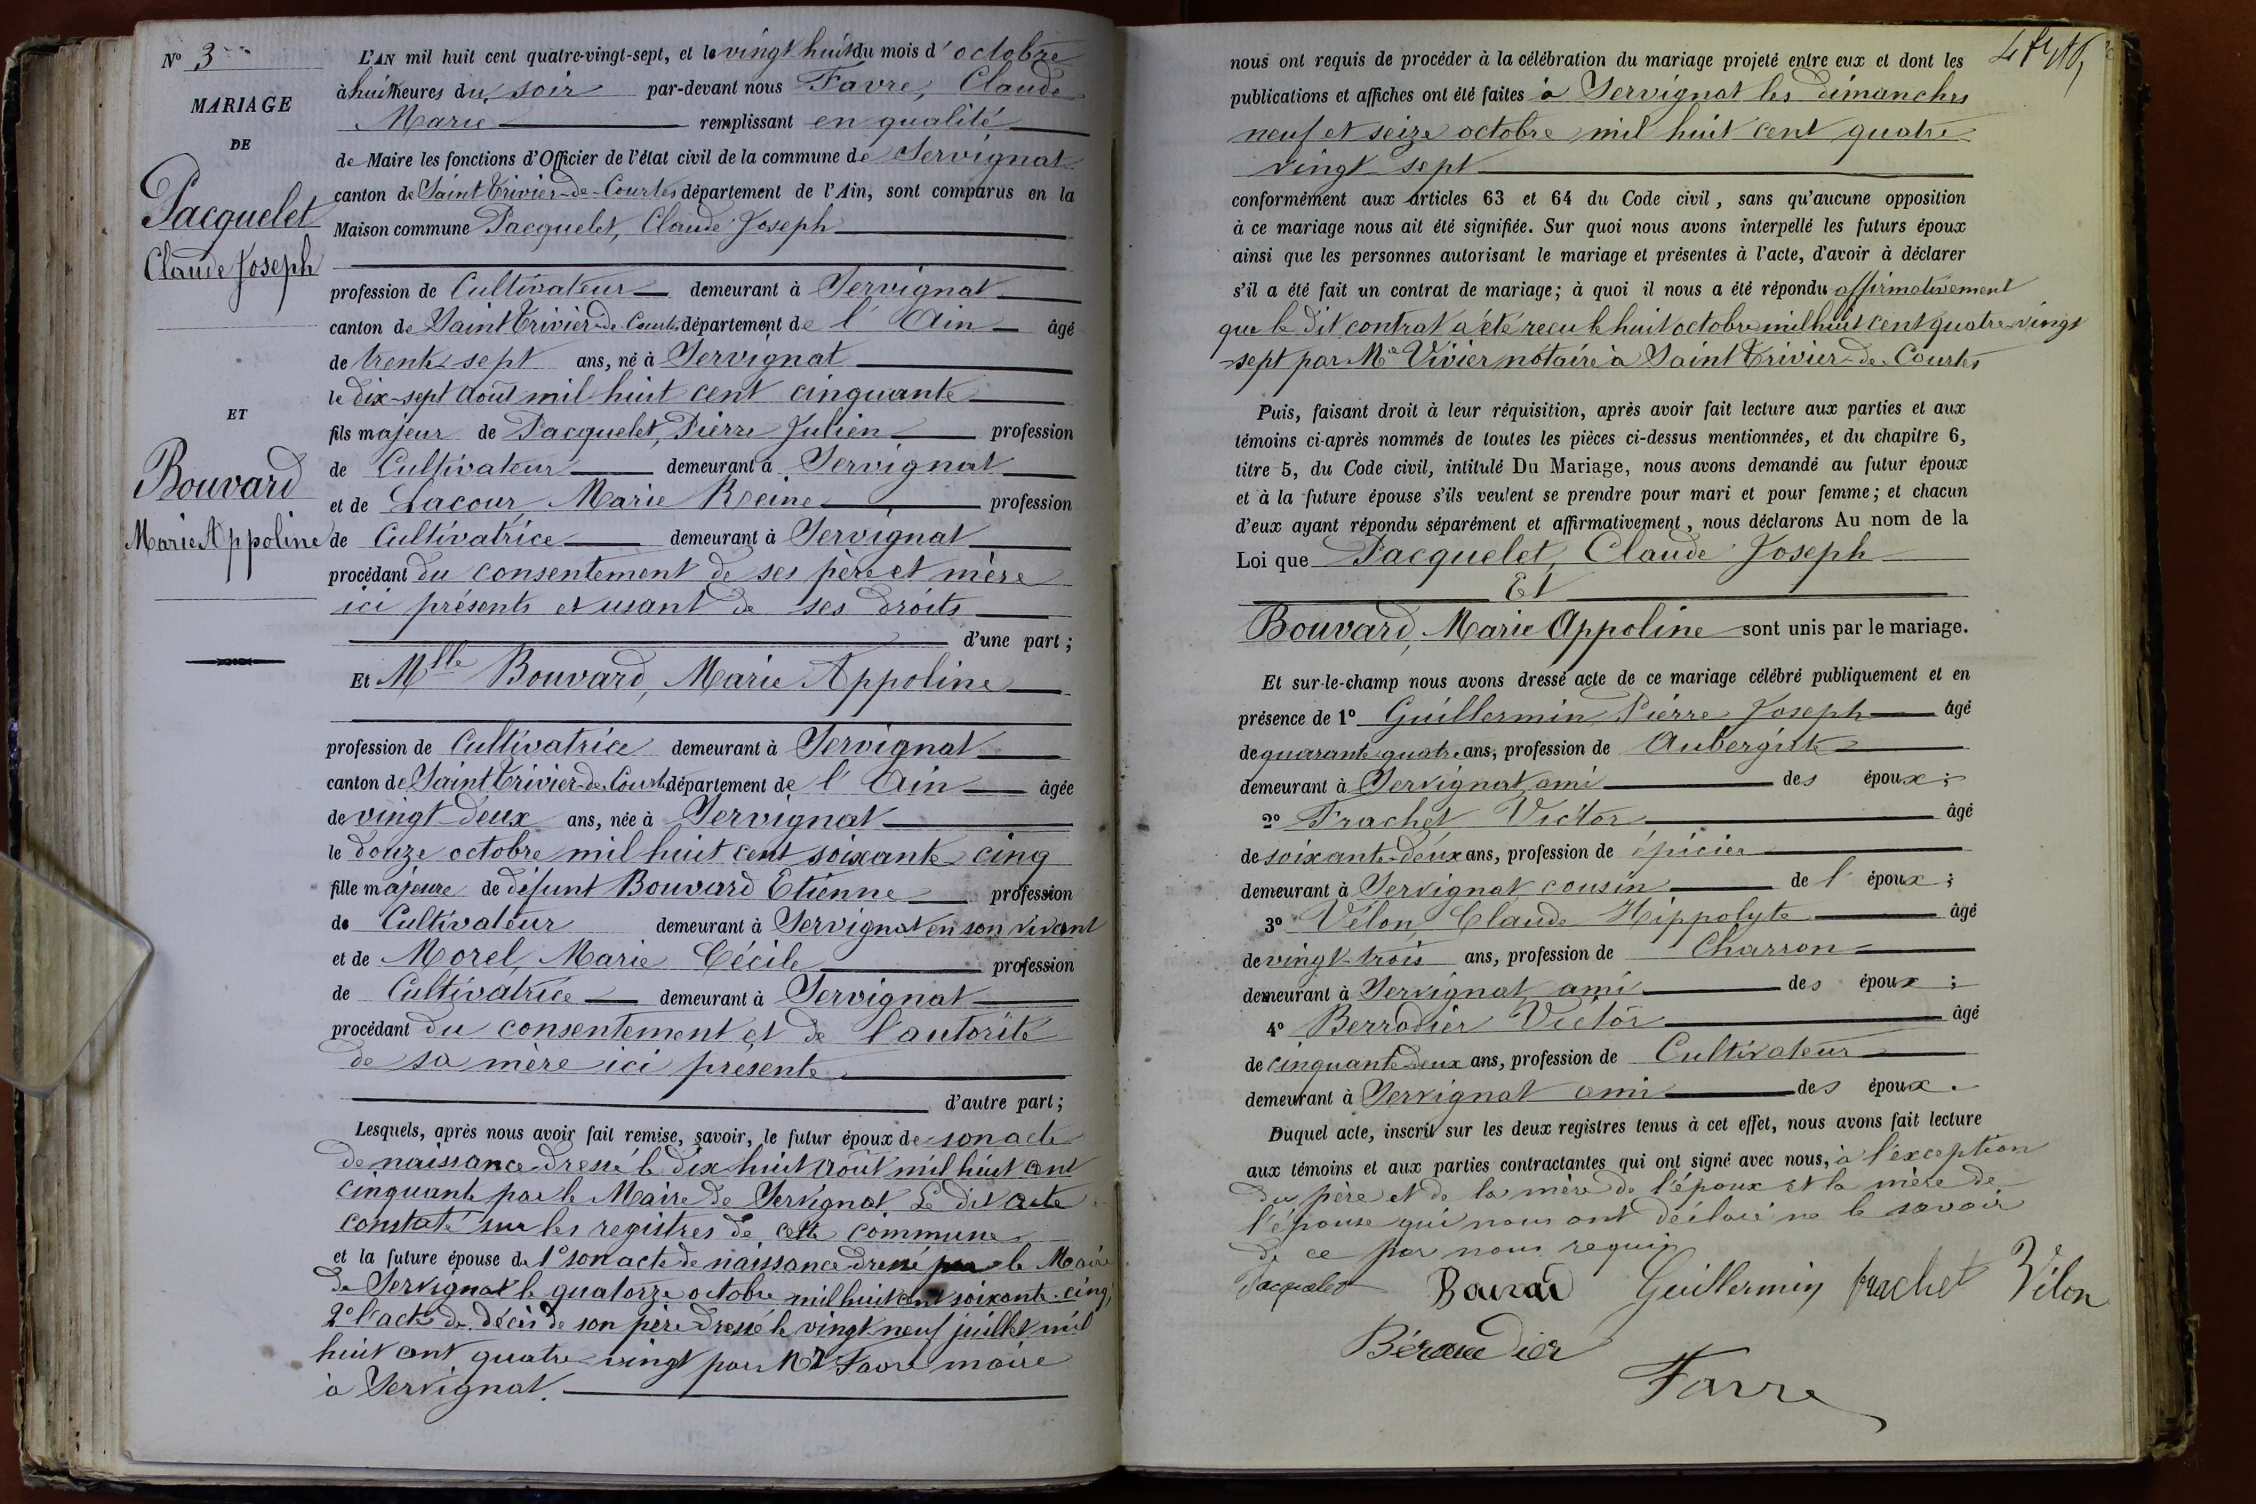 N° 3
MARIAGE
DE
Pacquelet
Claude Joseph
ET
Bouvard
Marie Appoline
L'AN mil huit cent quatre-vingt-sept, et le vingt huit du mois d'octobre
à huit heures du soir par-devant nous Favre, Claude
Marie remplissant en qualité
de Maire les fonctions d'Officier de l'état civil de la commune de Servignat
canton de Saint Trivier-de-Courtes département de l'Ain, sont comparus en la
Maison commune Pacquelet, Claude Joseph
profession de Cultivateur demeurant à Servignat
canton de Saint Trivier de Courtes département de l'Ain âgé
de trente-sept ans, né à Servignat
le dix-sept août mil huit cent cinquante
fils majeur de Pacquelet, Pierre Julien profession
de Cultivateur demeurant à Servignat
et de Lacour, Marie Reine profession
de Cultivatrice demeurant à Servignat
procédant du consentement de ses père et mère
ici présents et usant de ses droits
d'une part ;
Et Mlle Bouvard, Marie Appoline
profession de Cultivatrice demeurant à Servignat
canton de Saint Trivier-de-Courtes département de l'Ain âgée
de vingt-deux ans, née à Servignat
le douze octobre mil huit cent soixante-cinq
fille majeure de défunt Bouvard Etienne profession
de Cultivateur demeurant à Servignat en son vivant
et de Morel, Marie Cécile profession
de Cultivatrice demeurant à Servignat
procédant du consentement et de l'autorité
de sa mère ici présente
d'autre part ;
Lesquels, après nous avoir fait remise, savoir, le futur époux de son acte
de naissance dressé le dix huit août mil huit cent
cinquante par le Maire de Servignat. Le dit acte
constaté sur les registres de cette commune
et la future épouse de 1° son acte de naissance dressé par le Maire
de Servignat le quatorze octobre mil huit cent soixante-cinq,
2° l'acte de décès de son père dressé le vingt-neuf juillet mil
huit cent quatre-vingt par Mr Favre maire
à Servignat.
nous ont requis de procéder à la célébration du mariage projeté entre eux et dont les
publications et affiches ont été faites à Servignat les dimanches
neuf et seize octobre mil huit cent quatre
vingt sept
conformément aux articles 63 et 64 du Code civil, sans qu'aucune opposition
à ce mariage nous ait été signifiée. Sur quoi nous avons interpellé les futurs époux
ainsi que les personnes autorisant le mariage et présentes à l'acte, d'avoir à déclarer
s'il a été fait un contrat de mariage; à quoi il nous a été répondu affirmativement
que le dit contrat a été reçu le huit octobre mil huit cent quatre-vingt
-sept par Me Vivier notaire à Saint Trivier-de-Courtes
Puis, faisant droit à leur réquisition, après avoir fait lecture aux parties et aux
témoins ci-après nommés de toutes les pièces ci-dessus mentionnées, et du chapitre 6,
titre 5, du Code civil, intitulé Du Mariage, nous avons demandé au futur époux
et à la future épouse s'ils veulent se prendre pour mari et pour femme; et chacun
d'eux ayant répondu séparément et affirmativement, nous déclarons Au nom de la
Loi que Pacquelet, Claude Joseph
Et
Bouvard, Marie Appoline sont unis par le mariage.
Et sur-le-champ nous avons dressé acte de ce mariage célébré publiquement et en
présence de 1° Guillermin Pierre Joseph âgé
de quarante-quatre ans, profession de Aubergiste
demeurant à Servignat ami des époux ;
2° Frachet Victor âgé
de soixante-deux ans, profession de épicier
demeurant à Servignat cousin de l'époux ;
3° Vélon, Claude Hippolyte âgé
de vingt-trois ans, profession de Charron
demeurant à Servignat ami des époux ;
4° Berrodier Victor âgé
de cinquante-deux ans, profession de Cultivateur
demeurant à Servignat ami des époux.
Duquel acte, inscrit sur les deux registres tenus à cet effet, nous avons fait lecture
aux témoins et aux parties contractantes qui ont signé avec nous, à l'exception
du père et de la mère de l'époux et la mère de
l'épouse qui nous ont déclaré ne le savoir
de ce par nous requis
Pacquelet Bouvard Guillermin frachet Vélon
Béraudier
Favre